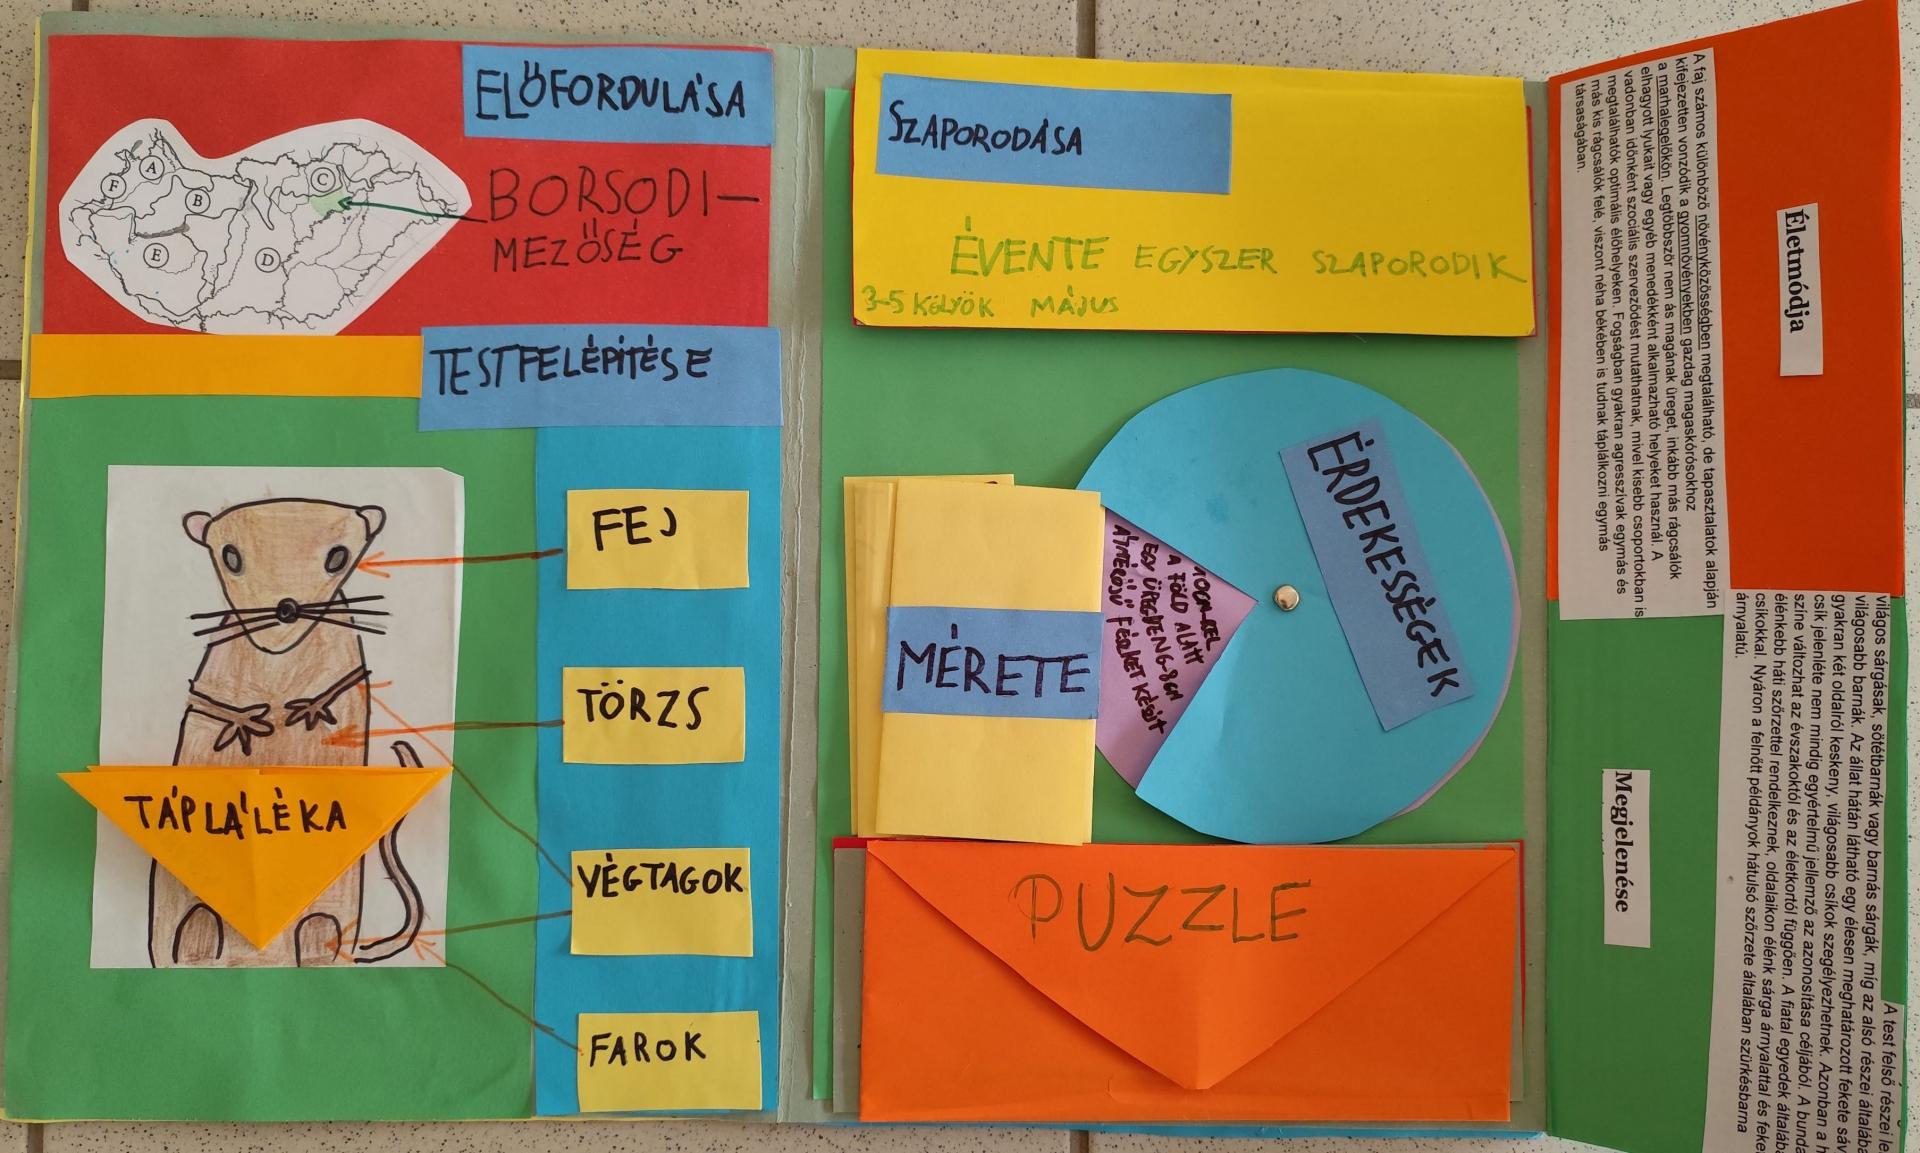 ELŐFORDULÁSA
BORSODI-
MEZŐSÉG
A
B
C
D
E
F
TESTFELÉPÍTÉSE
FEJ
TÖRZS
VÉGTAGOK
FAROK
TÁPLÁLÉKA
SZAPORODÁSA
ÉVENTE EGYSZER SZAPORODIK
3-5 KÖLYÖK MÁJUS
ÉRDEKESSÉGEK
A FÖLD ALATT
ÁTMÉRŐJŰ FÉRKET KÉSZÍT
MÉRETE
PUZZLE
Életmódja
A faj számos különböző növényközösségben megtalálható, de tapasztalatok alapján
kifejezetten vonzódik a gyomnövényekben gazdag magaskórósokhoz
a marhalegelőkön. Legtöbbször nem ás magának üreget, inkább más rágcsálók
elhagyott lyukait vagy egyéb menedékként alkalmazható helyeket használ. A
vadonban időnként szociális szerveződést mutathatnak, mivel kisebb csoportokban is
megtalálhatók optimális élőhelyeken. Fogságban gyakran agresszívak egymás és
más kis rágcsálók felé, viszont néha békében is tudnak táplálkozni egymás
társaságában.
Megjelenése
A test felső részei
világos sárgásak, sötétbarnák vagy barnás sárgák, míg az alsó részei
világosabb barnák. Az állat hátán látható egy élesen meghatározott fekete sáv
gyakran két oldalról keskeny, világosabb csíkok szegélyezhetnek. Azonban a
csík jelenléte nem mindig egyértelmű jellemző az azonosítása céljából. A bunda
színe változhat az évszakoktól és az életkortól függően. A fiatal egyedek
élénkebb háti szőrzettel rendelkeznek, oldalaikon élénk sárga árnyalattal és
csíkokkal. Nyáron a felnőtt példányok hátulsó szőrzete általában szürkésbarna
árnyalatú.